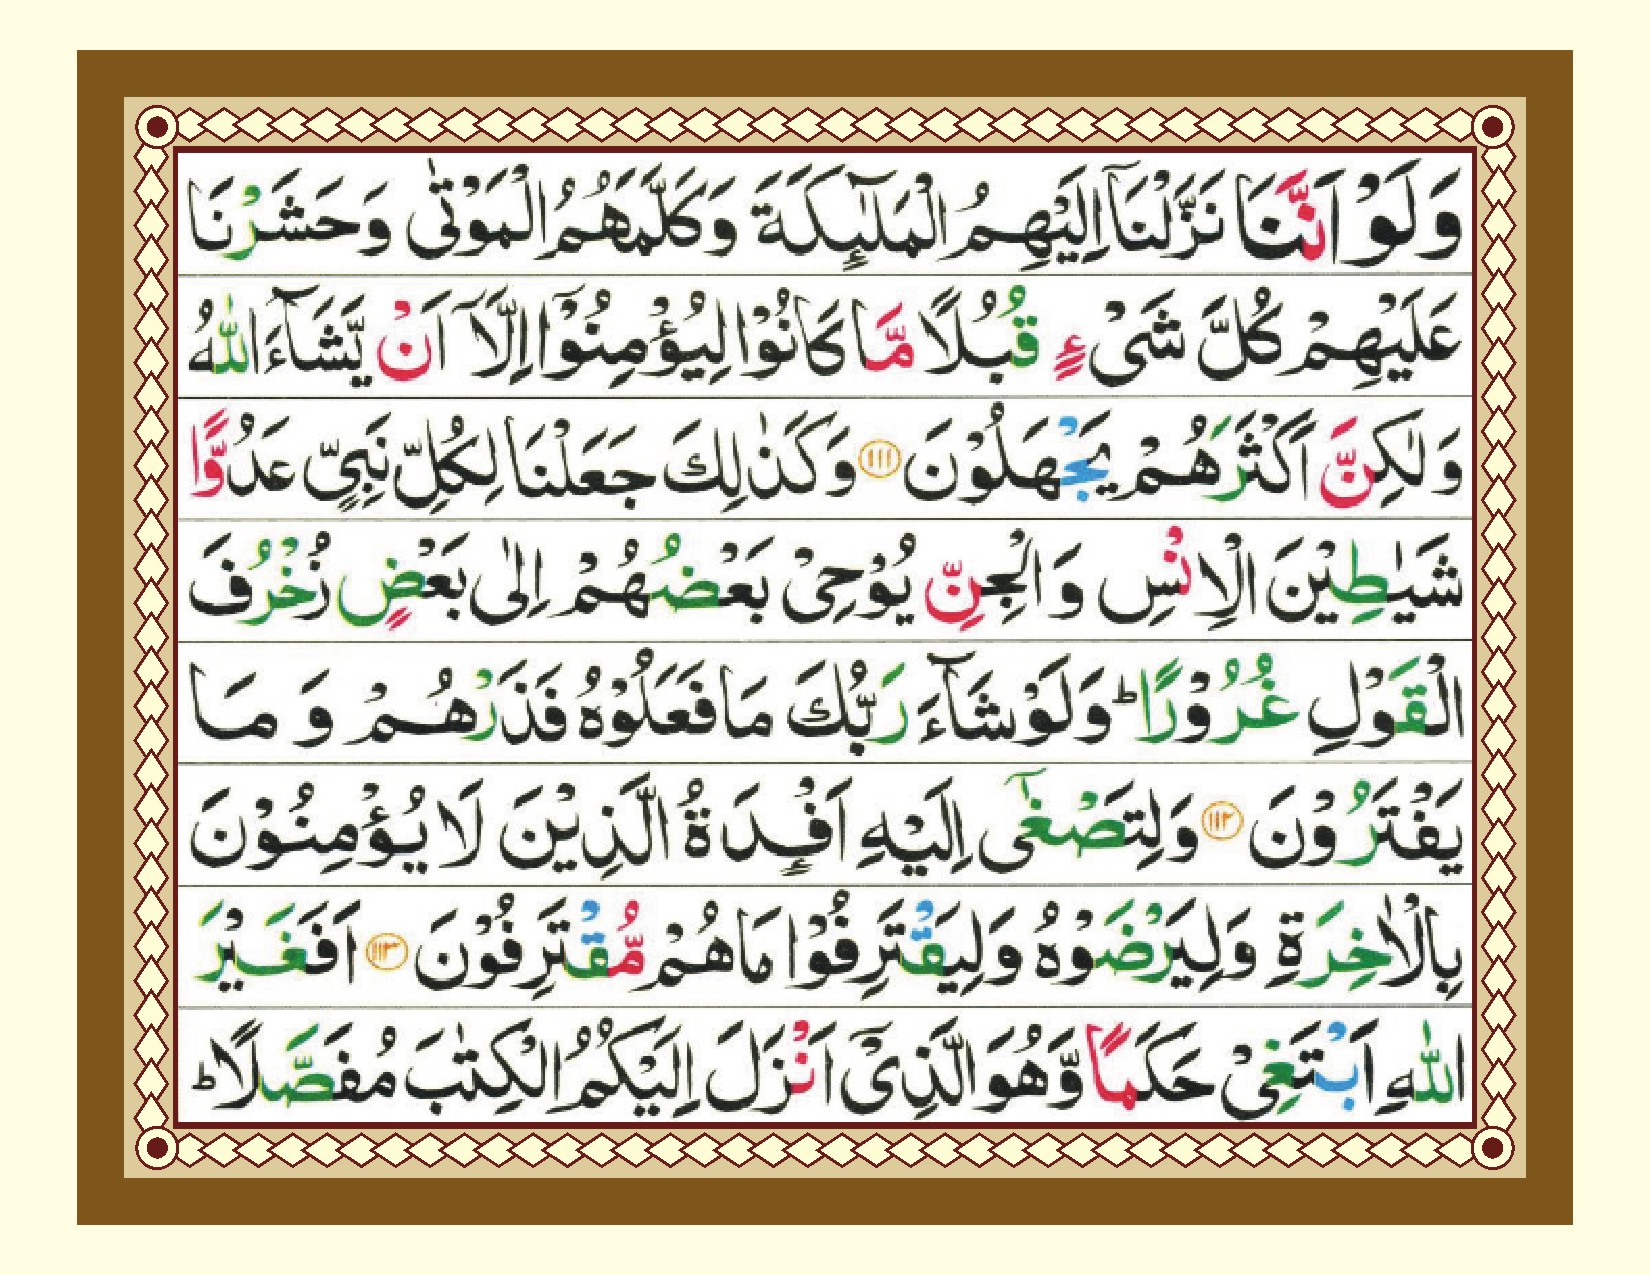 وَلَوْ اَنَّنَا نَزَّلْنَاۤ اِلَيْهِمُ الْمَلٰٓئِكَةَ وَكَلَّمَهُمُ الْمَوْتٰى وَحَشَرْنَا
عَلَيْهِمْ كُلَّ شَىْءٍ قُبُلًا مَّا كَانُوْا لِيُؤْمِنُوْۤا اِلَّاۤ اَنْ يَّشَآءَ اللّٰهُ
وَلٰكِنَّ اَكْثَرَهُمْ يَجْهَلُوْنَ ۝۱۱۱ وَكَذٰلِكَ جَعَلْنَا لِكُلِّ نَبِىٍّ عَدُوًّا
شَيٰطِيْنَ الْاِنْسِ وَالْجِنِّ يُوْحِىْ بَعْضُهُمْ اِلٰى بَعْضٍ زُخْرُفَ
الْقَوْلِ غُرُوْرًا ؕ وَلَوْ شَآءَ رَبُّكَ مَا فَعَلُوْهُ فَذَرْهُمْ وَ مَا
يَفْتَرُوْنَ ۝۱۱۲ وَلِتَصْغٰٓى اِلَيْهِ اَفْـِٕدَةُ الَّذِيْنَ لَا يُؤْمِنُوْنَ
بِالْاٰخِرَةِ وَلِيَرْضَوْهُ وَلِيَقْتَرِفُوْا مَا هُمْ مُّقْتَرِفُوْنَ ۝۱۱۳ اَفَغَيْرَ
اللّٰهِ اَبْتَغِىْ حَكَمًا وَّهُوَ الَّذِىْۤ اَنْزَلَ اِلَيْكُمُ الْكِتٰبَ مُفَصَّلًا ؕ